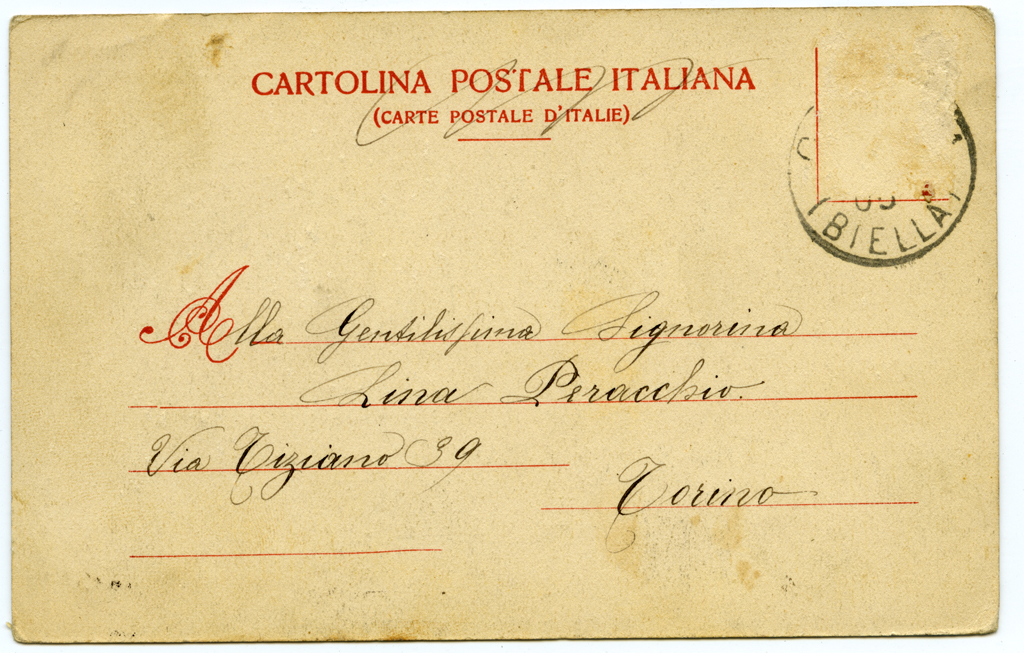 CARTOLINA POSTALE ITALIANA
(CARTE POSTALE D'ITALIE)
(BIELLA)
Alla Gentilissima Signorina
Lina Peracchio.
Via Tiziano 39
Torino